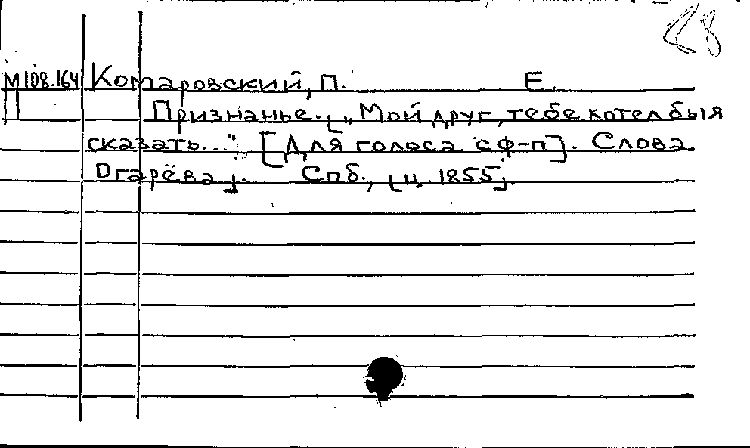 28
М108.164 Комаровский, П. Е.
П Признанье. [„Мой друг, тебе хотел бы я
сказать..." [Для голоса с ф-п]. Слова
Огарёва]. Спб., [ц. 1855].